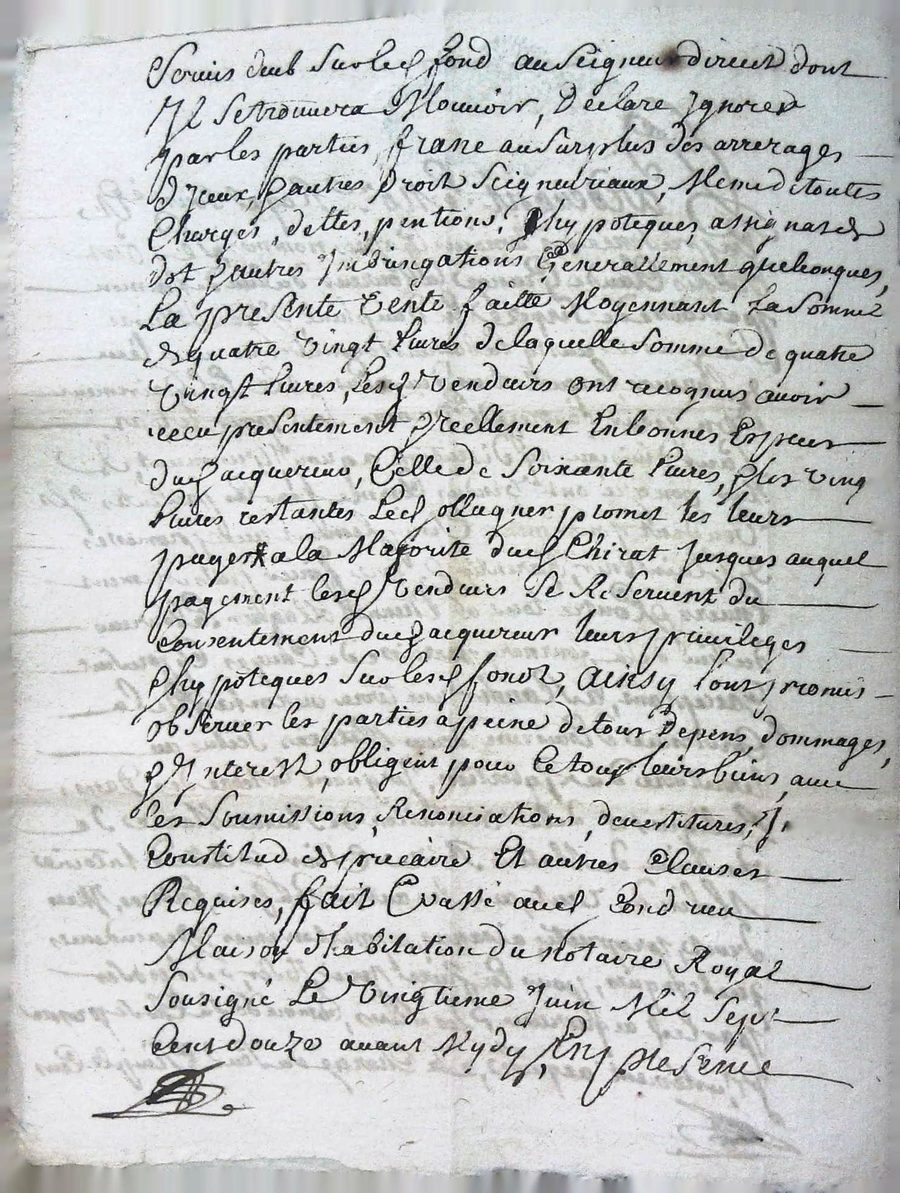 Servis deub sur lesd fond au seigneur direct dont
Il se trouvera Mouvoir, Declare Ignorer
par les parties, franc au surplus des arrerages
d'Iceux, & autres Droit seigneuriaux, Meme de toutes
Charges, dettes, pentions, & hypoteques, assignat de
dot & autres Imbringations Generallement quelconques,
La presente vente faitte Moyennant La somme
de quatre vingt Livres de laquelle somme de quatre
vingt Livres, Lesd vendeurs ont recognus avoir
recu presentement & reellement En bonnes Especes
dud acquereur, Celle de soixante Livres, & les ving
Livres restantes Led ollagner promet les leurs
payer a la Majorité dud Chirat Jusques auquel
payement lesd vendeurs se Reservent du
Consentement dud acquereur leurs privileges
& hypoteques sur lesd fondt, ainsy l'ont promis
observer les parties a peine de tous Depens, dommages,
& Interest, obligent pour ce tous leurs biens, avec
les soumissions, Renonciations, devestitures,
Constitud de precaire Et autres Clauses
Requises, fait & passé aud Condrieu
Maison d'habitation du notaire Royal
sousigné Le vingtieme Juin Mil sept
Cent douze avant Mydy, En presence